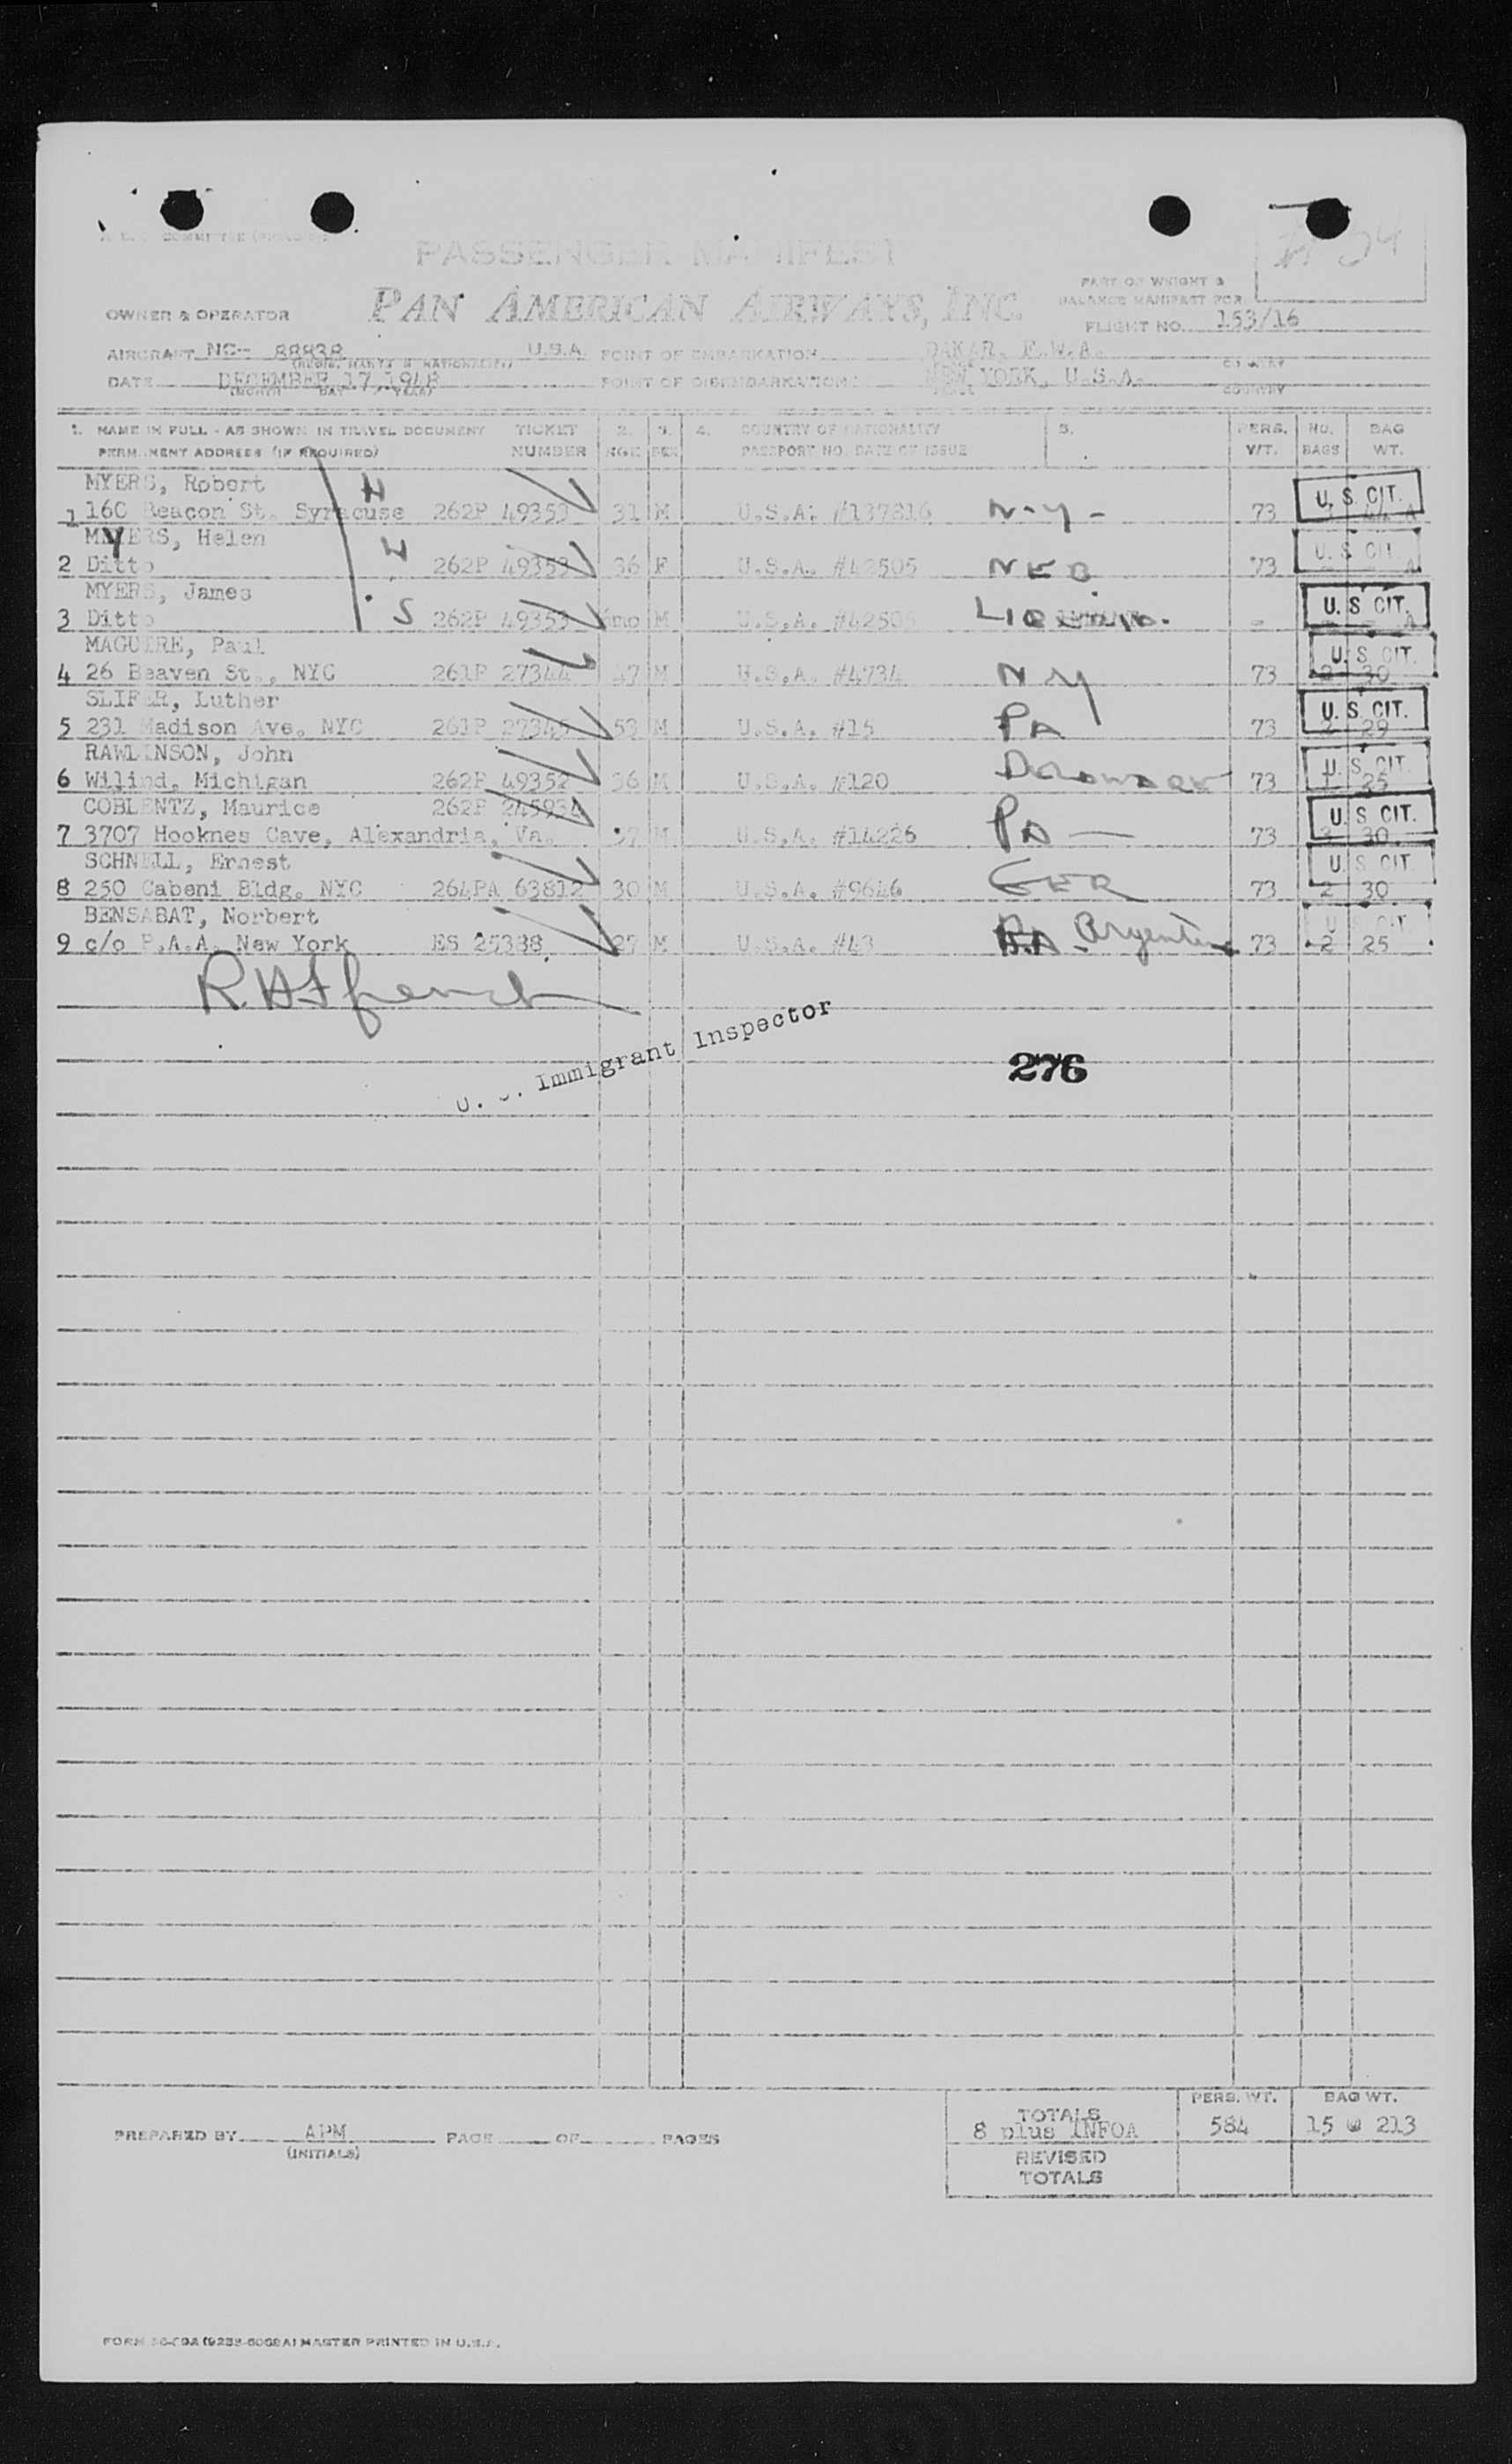 PASSENGER MANIFEST
PAN AMERICAN AIRWAYS, INC.
PART OF WEIGHT &
BALANCE MANIFEST FOR
FLIGHT NO. 153/16
OWNER & OPERATOR
AIRCRAFT NC- 88838 U.S.A. POINT OF EMBARKATION DAKAR, F.W.A.
COUNTRY
DATE DECEMBER 17, 1948 POINT OF DISEMBARKATION NEW YORK, U.S.A.
(MONTH DAY YEAR) COUNTRY
1. NAME IN FULL - AS SHOWN IN TRAVEL DOCUMENT TICKET 2. 3. 4. COUNTRY OF NATIONALITY 5. PERS. NO. BAG
PERMANENT ADDRESS (IF REQUIRED) NUMBER AGE SEX PASSPORT NO. DATE OF ISSUE WT. BAGS WT.
MYERS, Robert H
1 160 Beacon St. Syracuse 262P 49353 31 M U.S.A. #137816 N.Y. 73 U.S. CIT.
MYERS, Helen W
2 Ditto 262P 49353 36 F U.S.A. #42505 NEB 73 U.S. CIT.
MYERS, James
3 Ditto S 262P 49353 mo M U.S.A. #42505 - U.S. CIT.
MAGUIRE, Paul
4 26 Beaven St., NYC 261P 27344 47 M U.S.A. #4734 NY 73 2 30 U.S. CIT.
SLIFER, Luther
5 231 Madison Ave. NYC 261P 27345 53 M U.S.A. #15 PA 73 2 29 U.S. CIT.
RAWLINSON, John
6 Wilind, Michigan 262P 49352 36 M U.S.A. #120 Delaware 73 1 25 U.S. CIT.
COBLENTZ, Maurice 262P 245934
7 3707 Hooknes Cave, Alexandria, Va. 37 M U.S.A. #14226 PA — 73 3 30 U.S. CIT.
SCHNELL, Ernest
8 250 Cabeni Bldg. NYC 264PA 63812 30 M U.S.A. #9646 GER 73 2 30 U.S. CIT.
BENSABAT, Norbert
9 c/o P.A.A. New York ES 25388 27 M U.S.A. #43 Argentine 73 2 25 U.S. CIT.
U. S. Immigrant Inspector
276
PERS. WT. BAG WT.
TOTALS
8 plus INFOA 584 15 213
PREPARED BY APM PAGE OF PAGES
(INITIALS)
REVISED
TOTALS
MASTER PRINTED IN U.S.A.